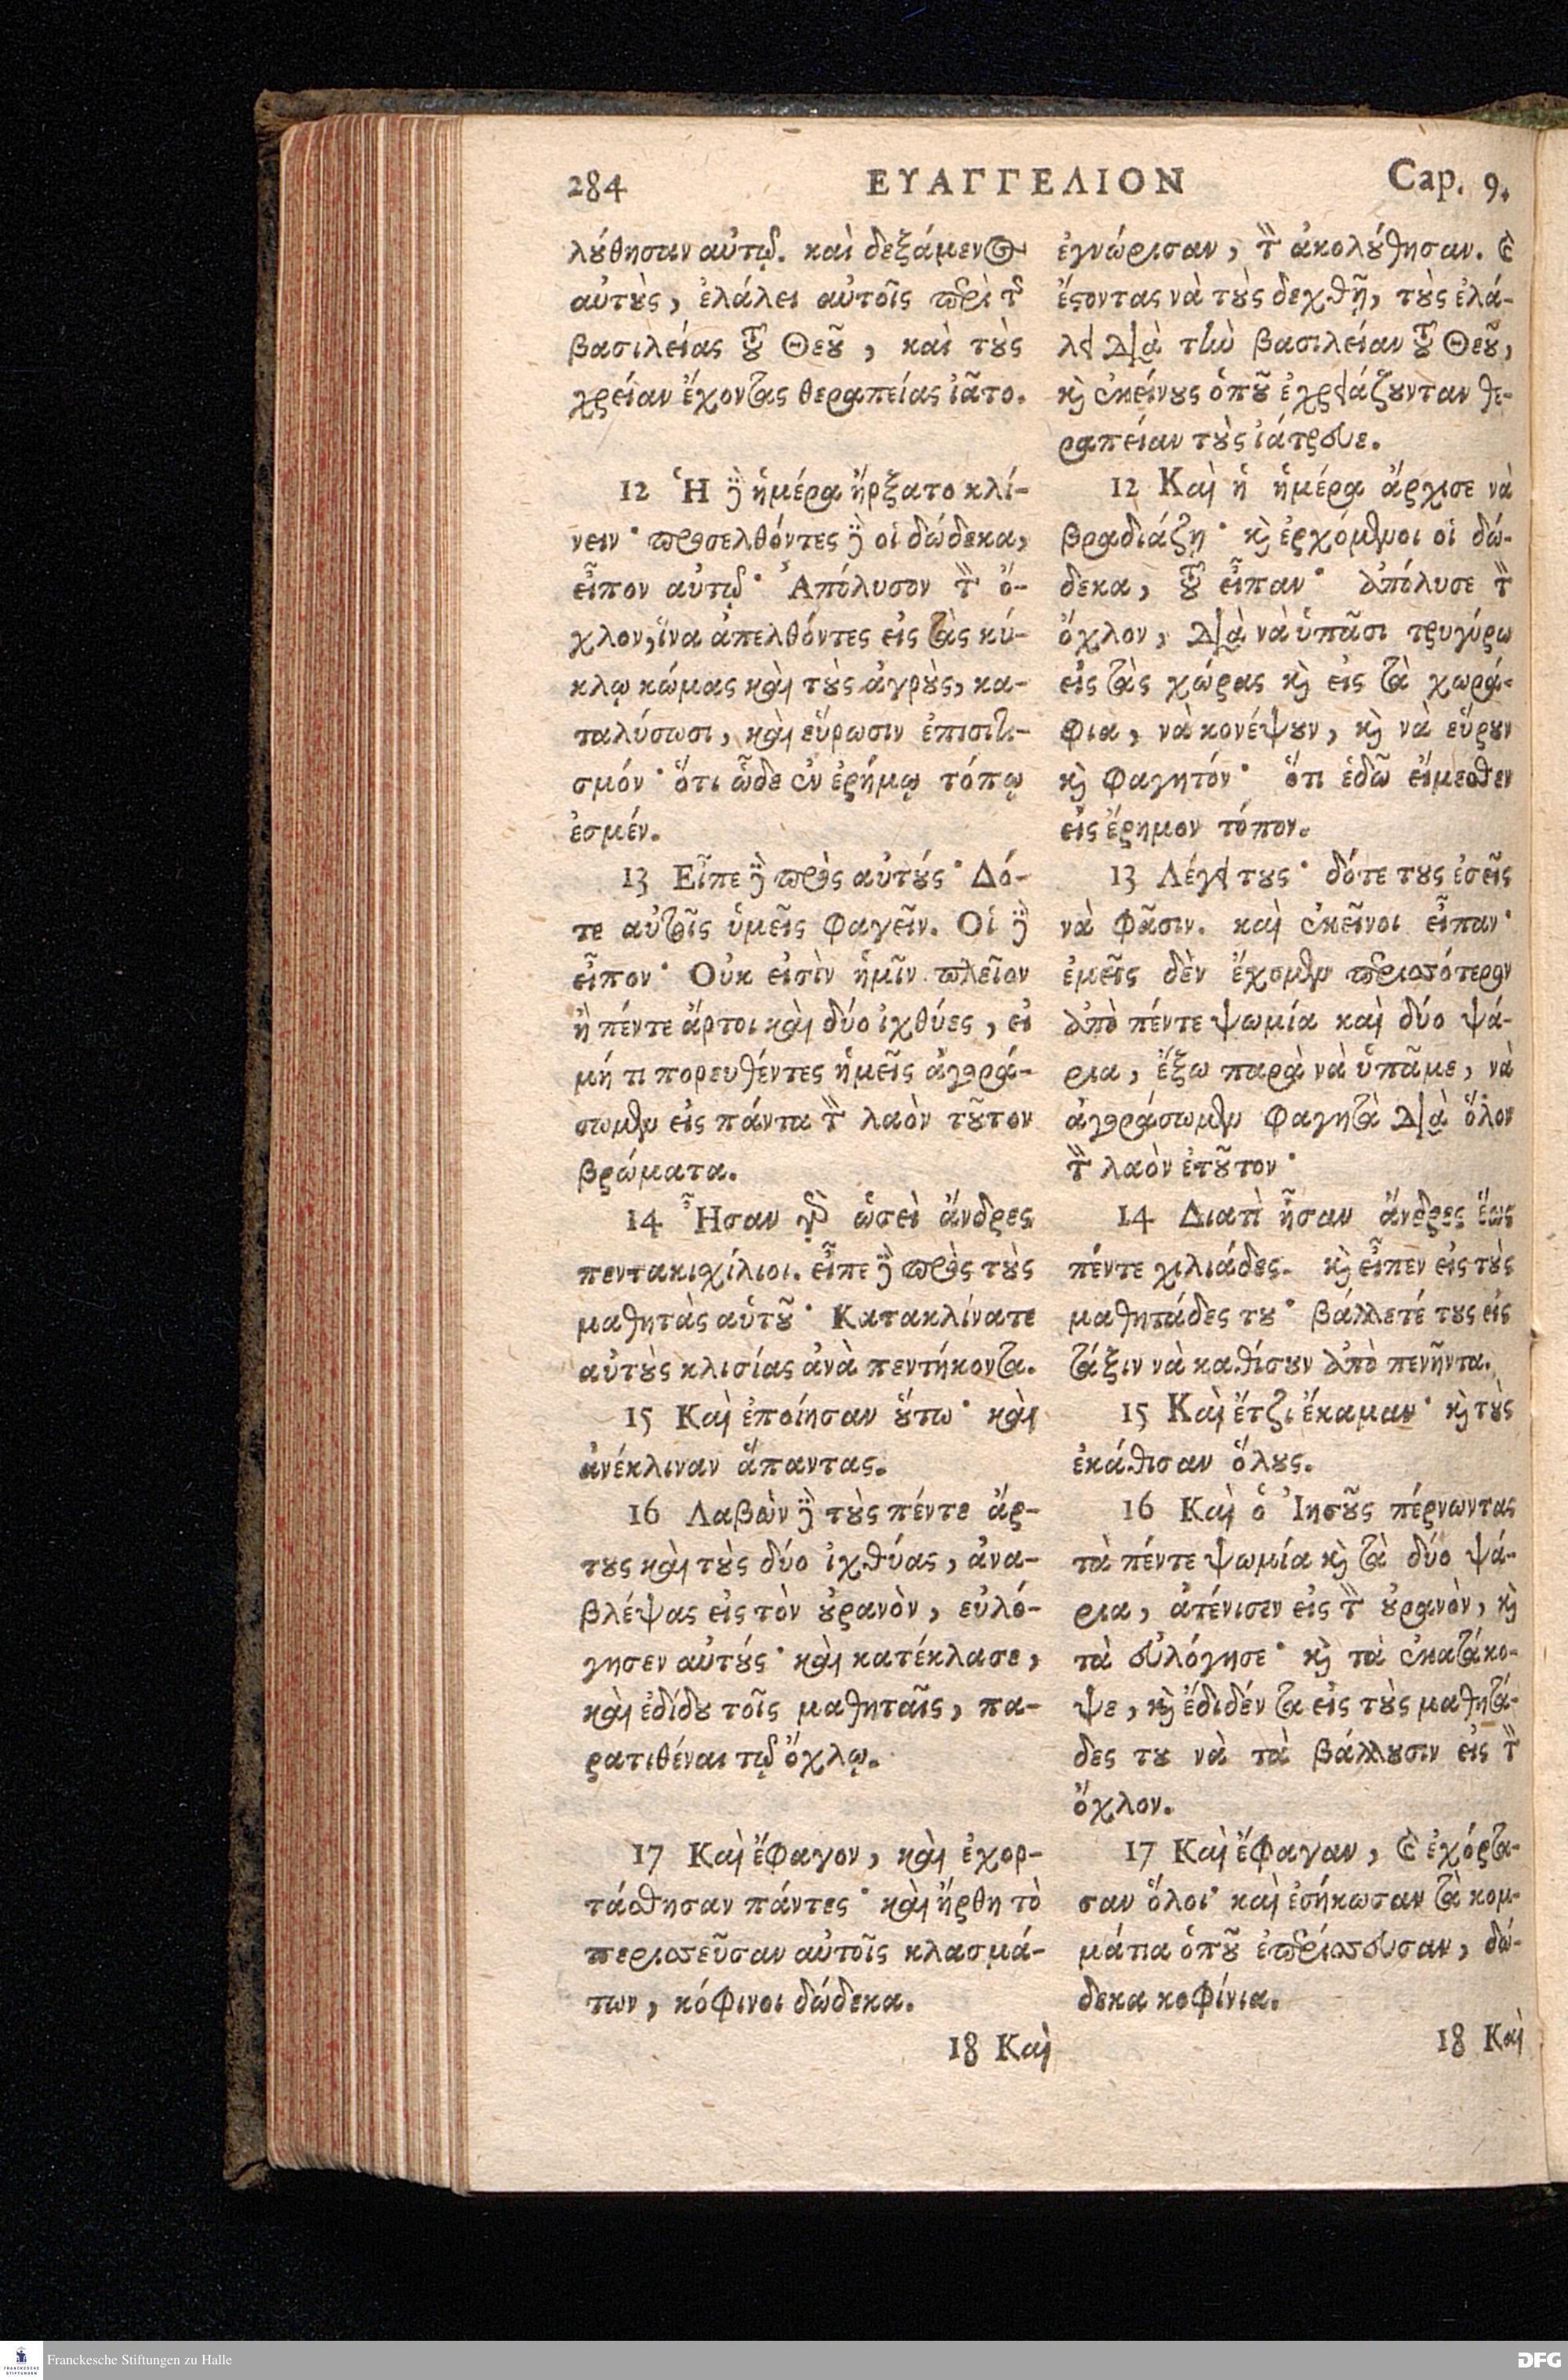 284 ΕΥΑΓΓΕΛΙΟΝ Cap. 9.
λȣ́θησαν αὐτῷ. καὶ δεξάμενος
αὐτȣ̀ς, ἐλάλει αὐτοῖς περὶ τῆς
βασιλείας τȣ͂ Θεȣ͂, καὶ τȣ̀ς
χρείαν ἔχοντας θεραπείας ἰᾶτο.
12 Ἡ δὲ ἡμέρα ἤρξατο κλί-
νειν· προσελθόντες δὲ οἱ δώδεκα,
εἶπον αὐτῷ· Ἀπόλυσον τὸν ὄ-
χλον, ἵνα ἀπελθόντες εἰς τὰς κύ-
κλῳ κώμας καὶ τȣ̀ς ἀγρȣ̀ς, κα-
ταλύσωσι, καὶ εὕρωσιν ἐπισιτι-
σμόν· ὅτι ὧδε ἐν ἐρήμῳ τόπῳ
ἐσμέν.
13 Εἶπε δὲ πρὸς αὐτȣ́ς· Δό-
τε αὐτοῖς ὑμεῖς φαγεῖν. Οἱ δὲ
εἶπον· Οὐκ εἰσὶν ἡμῖν πλεῖον
ἢ πέντε ἄρτοι καὶ δύο ἰχθύες, εἰ
μή τι πορευθέντες ἡμεῖς ἀγορά-
σωμεν εἰς πάντα τὸν λαὸν τȣ͂τον
βρώματα.
14 Ἦσαν γὰρ ὡσεὶ ἄνδρες
πεντακιχίλιοι. εἶπε δὲ πρὸς τȣ̀ς
μαθητὰς αὑτȣ͂· Κατακλίνατε
αὐτȣ̀ς κλισίας ἀνὰ πεντήκοντα.
15 Καὶ ἐποίησαν ȣ̔́τω· καὶ
ἀνέκλιναν ἅπαντας.
16 Λαβὼν δὲ τȣ̀ς πέντε ἄρ-
τȣς καὶ τȣ̀ς δύο ἰχθύας, ἀνα-
βλέψας εἰς τὸν ȣ̓ρανὸν, εὐλό-
γησεν αὐτȣ́ς· καὶ κατέκλασε,
καὶ ἐδίδȣ τοῖς μαθηταῖς, πα-
ρατιθέναι τῷ ὄχλῳ.
17 Καὶ ἔφαγον, καὶ ἐχορ-
τάσθησαν πάντες· καὶ ἤρθη τὸ
περισσεῦσαν αὐτοῖς κλασμά-
των, κόφινοι δώδεκα.
18 Καὶ
ἐγνώρισαν, τὸν ἀκολȣ́θησαν. καὶ
ἔστοντας νὰ τȣ̀ς δεχθῇ, τȣ̀ς ἐλά-
λει διὰ τὴν βασιλείαν τȣ͂ Θεȣ͂,
καὶ ἐκείνȣς ὁπȣ͂ ἐχρειάζȣνταν θε-
ραπείαν τȣ̀ς ἰάτρευε.
12 Καὶ ἡ ἡμέρα ἄρχισε νὰ
βραδιάζῃ· καὶ ἐρχόμενοι οἱ δώ-
δεκα, τȣ͂ εἶπαν· ἀπόλυσε τὸν
ὄχλον, διὰ νὰ ὑπᾶσι τρυγύρω
εἰς τὰς χώρας καὶ εἰς τὰ χωρά-
φια, νὰ κονέψȣν, καὶ νὰ εὕρȣν
καὶ φαγητόν· ὅτι ἐδῶ εἴμεσθεν
εἰς ἔρημον τόπον.
13 Λέγει τȣς· δότε τȣς ἐσεῖς
νὰ φᾶσιν. καὶ ἐκεῖνοι εἶπαν·
ἐμεῖς δὲν ἔχομεν περισσότερον
ἀπὸ πέντε ψωμία καὶ δύο ψά-
ρια, ἔξω παρὰ νὰ ὑπᾶμε, νὰ
ἀγοράσωμεν φαγητὰ διὰ ὅλον
τὸν λαὸν ἐτȣ͂τον·
14 Διατὶ ἦσαν ἄνδρες ἕως
πέντε χιλιάδες. καὶ εἶπεν εἰς τȣ̀ς
μαθητάδες τȣ· βάλλετέ τȣς εἰς
τάξιν νὰ καθίσȣν ἀπὸ πενῆντα.
15 Καὶ ἔτζι ἔκαμαν· καὶ τȣ̀ς
ἐκάθισαν ὅλȣς.
16 Καὶ ὁ Ἰησȣ͂ς πέρνωντας
τὰ πέντε ψωμία καὶ τὰ δύο ψά-
ρια, ἀτένισεν εἰς τὸν ȣ̓ρανὸν, καὶ
τὰ εὐλόγησε· καὶ τὰ ἐκατάκο-
ψε, καὶ ἔδιδέν τα εἰς τȣ̀ς μαθητά-
δες τȣ νὰ τὰ βάλλȣσιν εἰς τὸν
ὄχλον.
17 Καὶ ἔφαγαν, καὶ ἐχόρτα-
σαν ὅλοι· καὶ ἐσήκωσαν τὰ κομ-
μάτια ὁπȣ͂ ἐπερίσσευσαν, δώ-
δεκα κοφίνια.
18 Καὶ
FRANCKESCHE STIFTUNGEN
Franckesche Stiftungen zu Halle
DFG